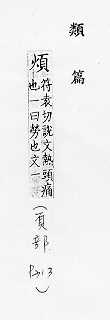 類篇
煩
符袁切說文熱頭痛
也一曰勞也文一
(頁部 )